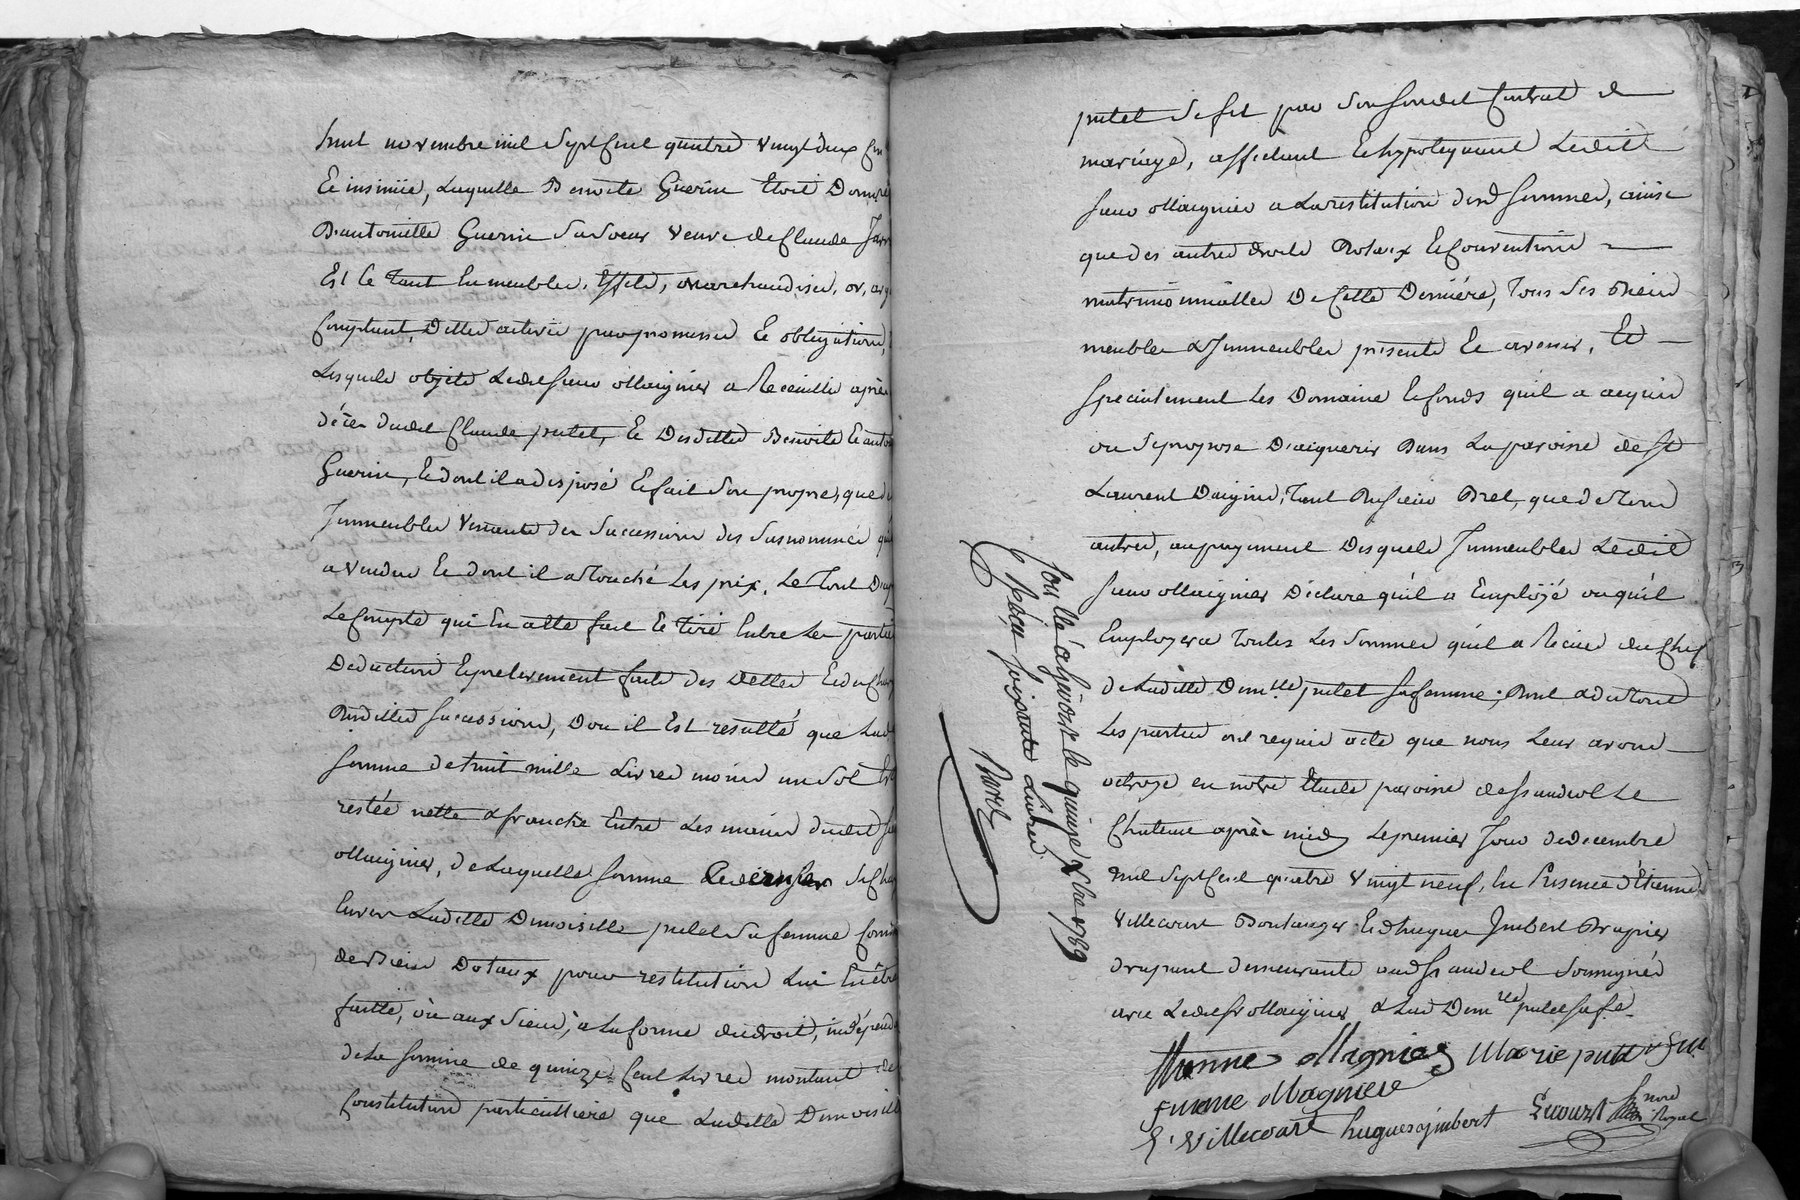 huit novembre mil Sept Cent quatre vingt deux
Et insinuée, Laquelle Benoite Guerin Etoit
D'antoinette Guerin Sa Soeur veuve de Claude
Est Ce Tant En meubles, Effets, marchandises, or,
Comptant, Dettes actives par promesses Et obligations,
Lesquels objets Ledit Sieur Magnier a Receuillis après
décès dudit Claude putet, Et Desdittes Benoite Et
Guerin, Et dont il a disposé Et fait Son propre, que
Immeubles venants des Successions des Susnommés
a vendus Et dont il a Touché Les prix, Le Tout
Le Compte qui En a été fait Et Tiré Entre Les parties
Deduction Et prelevement faits des Dettes Et
Desdittes Successions, Dou il Est resulté que
Somme de huit mille Livres moins un Sol
restée nette & franche Entre Les mains dudit
Magnier, de Laquelle Somme Ce dernier
Envers Laditte Demoiselle putet Sa femme
de Biens Dotaux pour restitution Lui En être
faitte, ou aux Siens, a la forme du droit,
de La Somme de quinze Cent Livres montant
Constitution particulliere que Laditte Demoiselle
putet Se fit par Son Susdit Contrat de
mariage, affectant Et hypotequant Ledit
Sieur Magnier a La restitution desd Sommes, ainsi
que des autres droits Dotaux Et Conventions
matrimonialles De Cette Derniere, Tous Ses Biens
meubles & Immeubles présents Et avenir, Et
Specialement Les Domaine Et fonds qu'il a acquis
ou Se propose D'aquerir Dans La paroisse de St
Laurent Daigny, Tant du Sieur Bret, que de Tous
autres, au payement Desquels Immeubles Ledit
Sieur Magnier Déclare qu'il a Employé ou qu'il
Employera Toutes Les Sommes qu'il a Recues du Chef
de Laditte Demlle putet Sa femme; Dont & du Tout
Les parties ont requis acte que nous Leur avons
octroyé en notre Etude paroisse de St andeol Le
Chateau après midy Le premier Jour de decembre
mil Sept Cent quatre vingt neuf, En Presence d'Etienne
Villecourt Boulanger Et d'hugues Imbert
demeurants aud St andeol Soussignés
avec Ledit Sr Magnier & Lad Demlle putet Sa fe.
Magnier Marie putet
Magniere
E. Villecourt hugues jmbert
Royal
le quinze Xbre 1789
Reçu Soixante Livres